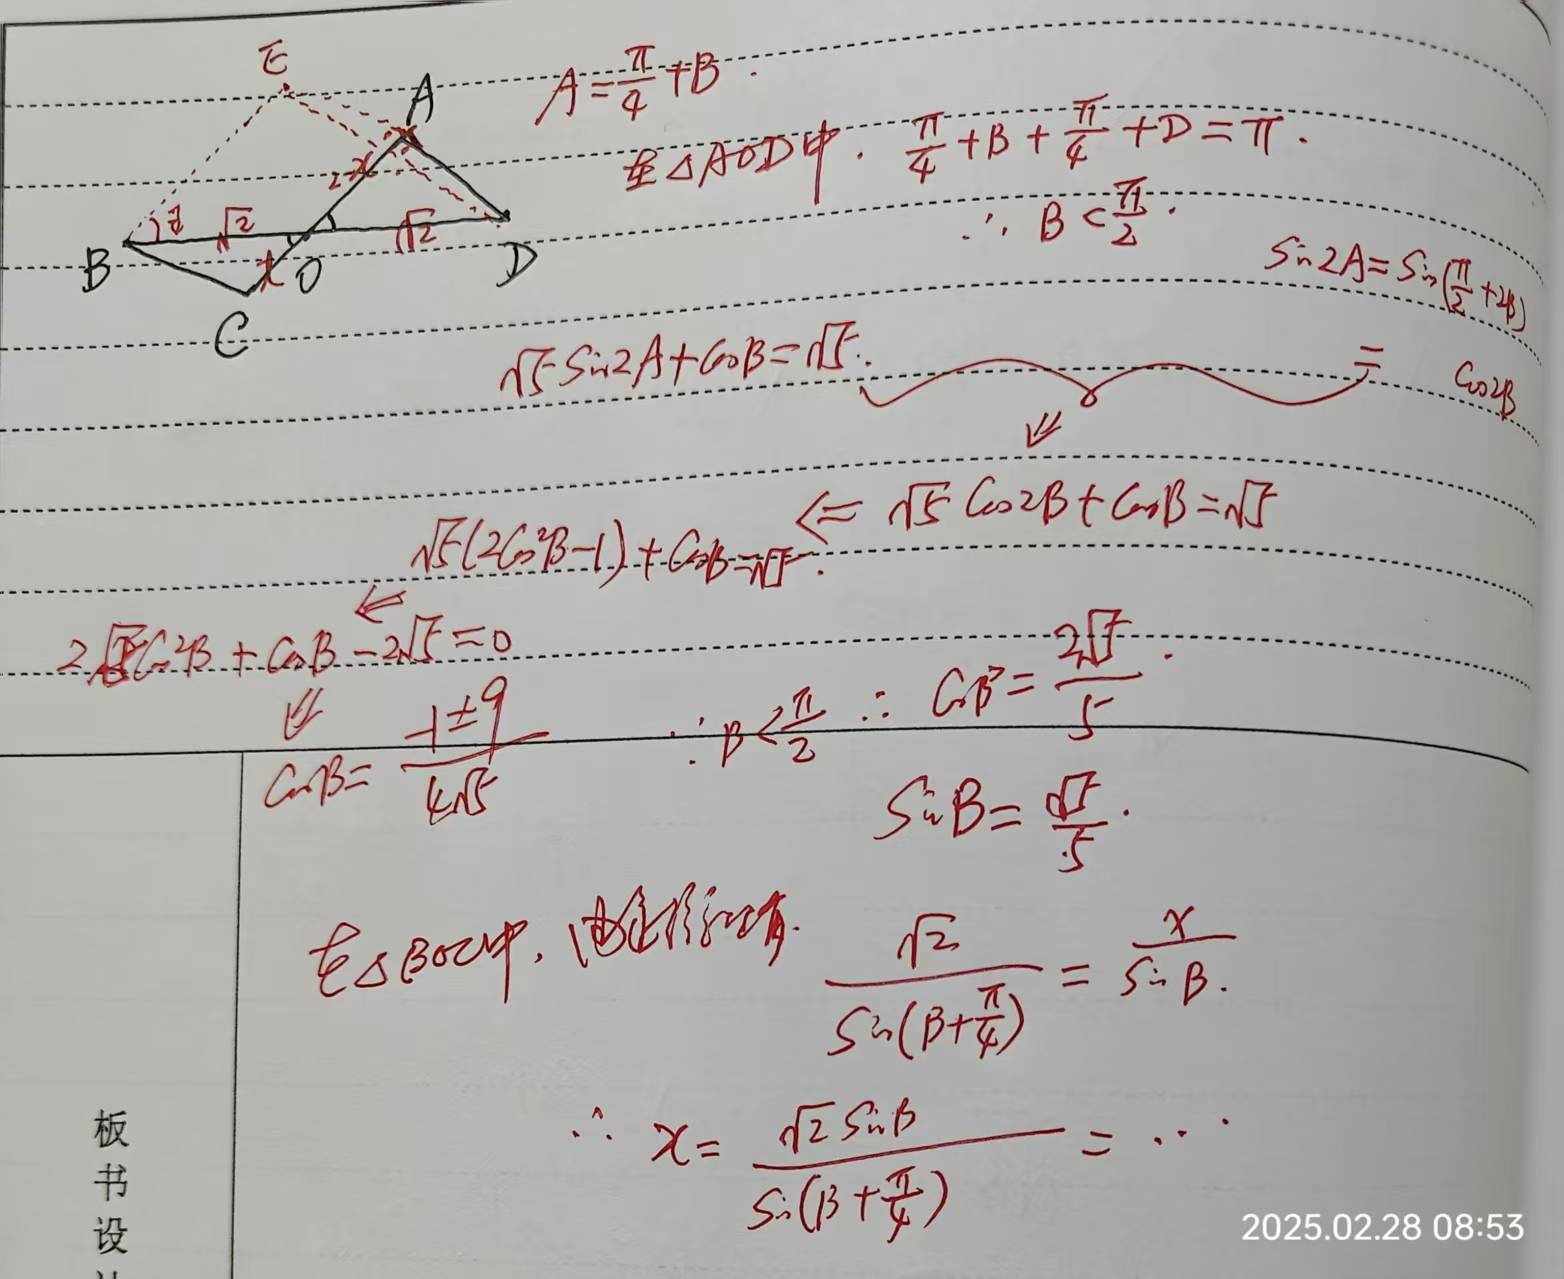 E
A
B
√2
√2
D
x
O
C
A=π/4+B.
在△AOD中. π/4+B+π/4+D=π.
∴ B<π/2.
Sin2A=Sin(π/2+2B)
= Cos2B
√5 Sin2A+CosB=√5.
⇐ √5 Cos2B+CosB=√5
√5(2Cos²B-1)+CosB=√5.
2√5Cos²B+CosB-2√5=0
CosB= (-1±9)/(4√5)
∵B<π/2 ∴ CosB=2√5/5.
SinB=√5/5.
在△BOC中, 由正弦定理有.
√2/Sin(B+π/4) = x/SinB.
∴ x= √2 SinB/Sin(B+π/4) = ...
板
书
设
2025.02.28 08:53